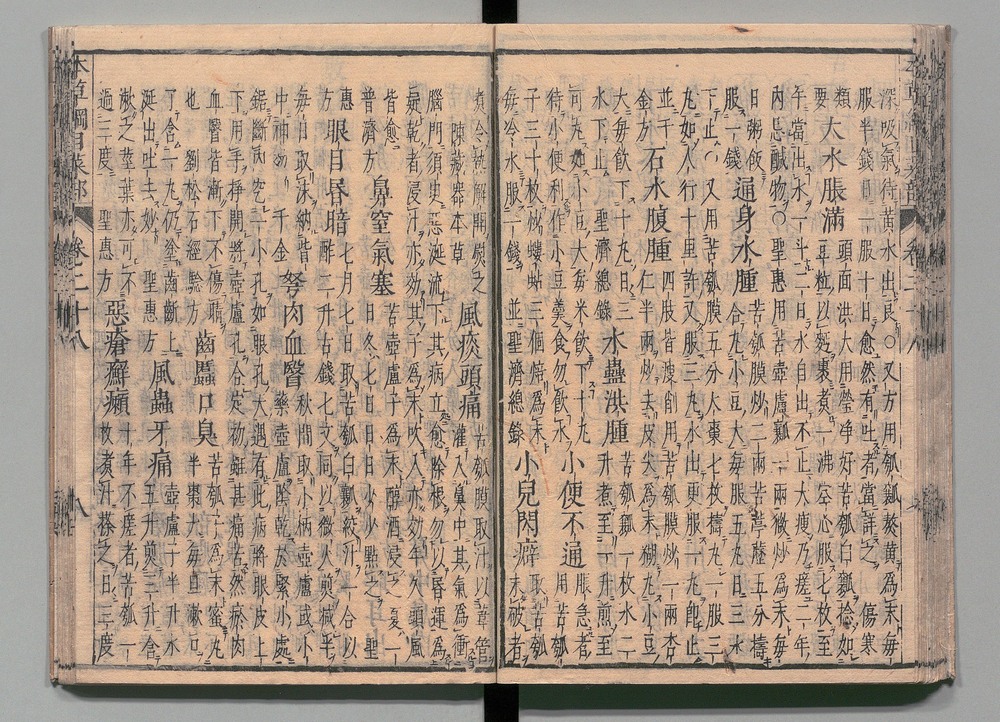 深吸氣待黃水出良○又方用瓠瓤熬黃為末每
服半錢日一服十日愈然有吐者當詳之 傷寒
類要 大水脹滿 頭面洪大用瑩淨好苦瓠白瓤捻如
豆粒以麪裹煮一沸空心服七枚至
午當出水一斗二日水自出不止大瘦乃瘥二年
內忌鹹物○聖惠用苦壺盧瓤一兩微炒為末每
日粥飲服一錢 通身水腫 苦瓠膜炒二兩苦葶藶五分擣
合丸小豆大每服五丸日三水
下止○又用苦瓠膜五分大棗七枚擣丸一服三
丸如人行十里許又服三丸水出更服一丸即止
並千金方 石水腹腫 四肢皆瘦削用苦瓠膜炒一兩杏
仁半兩炒去皮尖為末糊丸小豆
大每飲下十丸日三
水下止 聖濟總錄 水蠱洪腫 苦瓠瓤一枚水二
升煮至一升煎至
可丸如小豆大每米飲下十丸
待小便利作小豆羹食勿飲水 小便不通 脹急者
用苦瓠
子三十枚炒螻蛄三個焙為末
每冷水服一錢 並聖濟總錄 小兒閃癖 取苦瓠
未破者
煮令熱解開熨之
陳藏器本草 風痰頭痛 苦瓠膜取汁以葦管
灌入鼻中其氣為衝
腦門須臾惡涎流下其病立愈除根勿以昏運為
疑乾者浸汁亦效其子為末吹入亦效年久頭風
皆愈
普濟方 鼻窒氣塞 苦壺盧子為末醇酒浸之夏一
日冬七日日少少點之 聖
惠方 眼目昏暗 七月七日取苦瓠白瓤絞汁一合以
酢二升古錢七文同以微火煎減半
每日取沫納眥
中神效 千金 弩肉血瞖 秋間取小柄壺盧或小
藥壺盧陰乾於緊小處
鋸斷內挖一小孔如眼孔大遇有此病將眼皮上
下用手掙開將壺盧孔合定初雖甚痛苦然瘀肉
血瞖皆漸下不傷睛
也 劉松石經驗方 齒䘌口臭 苦瓠子為末蜜丸
半棗大每旦漱口
了含一丸仍塗齒齗上
涎出吐去妙 聖惠方 風蟲牙痛 壺盧子半升水
五升煎三升含
漱之莖葉亦可不
過三度 聖惠方 惡瘡癬癩 十年不瘥者苦瓠一
枚煮汁搽之日三度